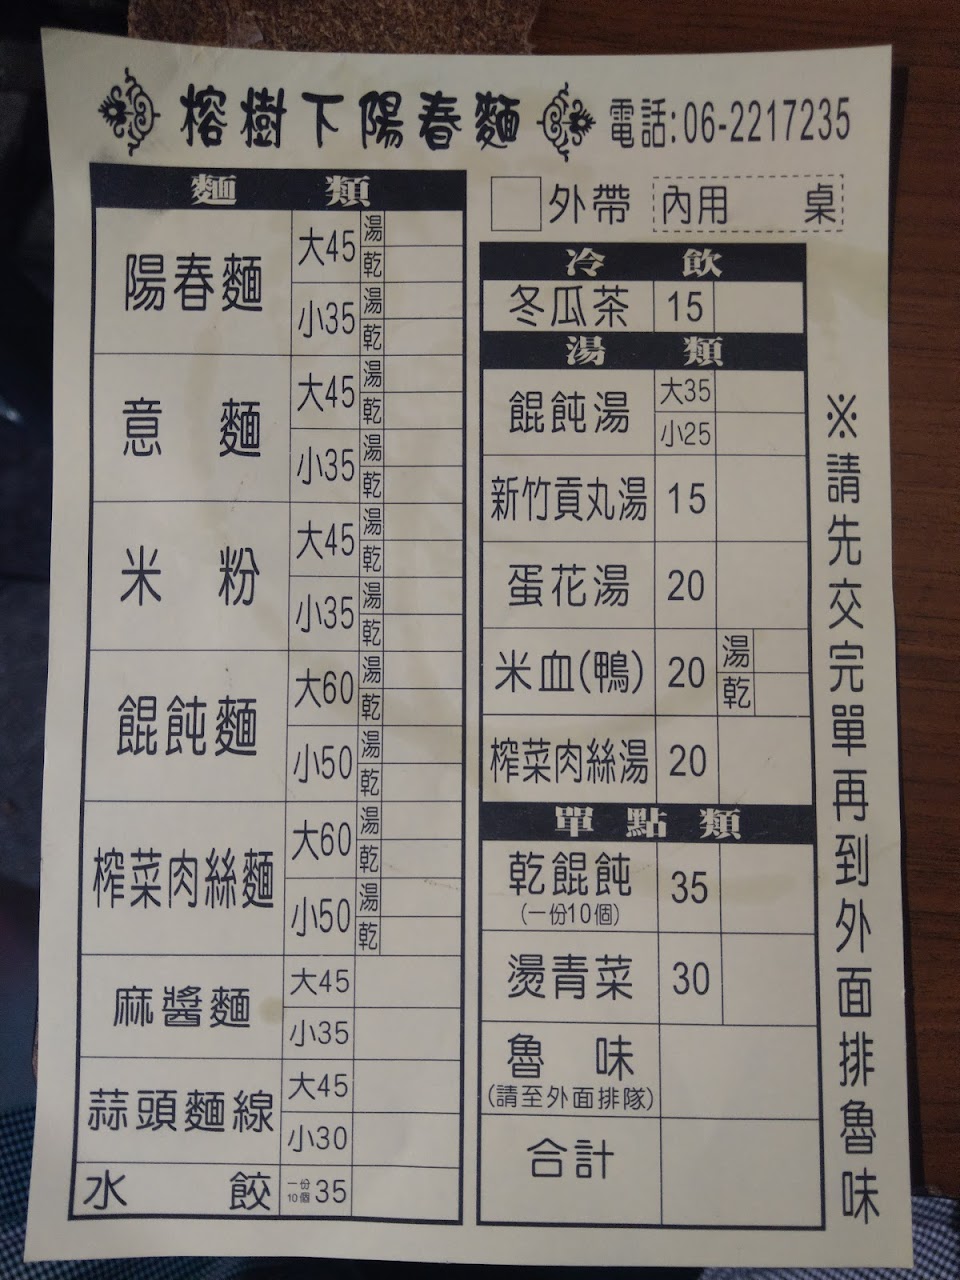 榕樹下陽春麵 電話:06-2217235
麵類
陽春麵 大45 湯
乾
小35 湯
乾
意麵 大45 湯
乾
小35 湯
乾
米粉 大45 湯
乾
小35 湯
乾
餛飩麵 大60 湯
乾
小50 湯
乾
榨菜肉絲麵 大60 湯
乾
小50 湯
乾
麻醬麵 大45
小35
蒜頭麵線 大45
小30
水餃 一份10個 35
外帶 內用 桌
冷飲
冬瓜茶 15
湯類
餛飩湯 大35
小25
新竹貢丸湯 15
蛋花湯 20
米血(鴨) 20 湯
乾
榨菜肉絲湯 20
單點類
乾餛飩 35
(一份10個)
燙青菜 30
魯味
(請至外面排隊)
合計
※請先交完單再到外面排魯味